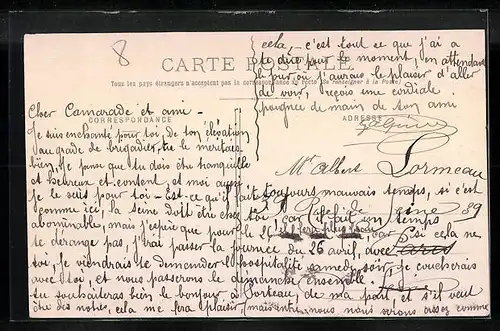 8
cela, - c'est tout ce que j'ai à
te dire pour le moment, en attendant
le jour où j'aurais le plaisir d'aller
de voir, reçois une cordiale
poignée de main de ton ami
CARTE POSTALE
Tous les pays étrangers n'acceptent pas la correspondance au recto (se renseigner à la Poste)
CORRESPONDANCE
ADRESSE
Cher Camarade et ami -
Je suis enchanté pour toi, de ton élévation
au grade de brigadier, tu le méritais
bien, je pense que tu dois être tranquille
et heureux et content, et moi aussi
je le suis pour toi - Est-ce qu'il fait toujours mauvais temps, si c'est
comme ici, la Seine doit être
abominable, mais j'espère que pour le
te dérange pas, j'irai passer la journée du 26 avril, avec
toi, je viendrais te demander l'hospitalité samedi soir, je coucherais
avec toi, et nous passerons le dimanche ensemble
tu souhaiteras bien le bonjour à Porteau, de ma part, et s'il veut
être des notres, cela me fera plaisir, maintenant nous nous serons assez comme
Mr Albert Lormeau
89
car si cela ne
Paris